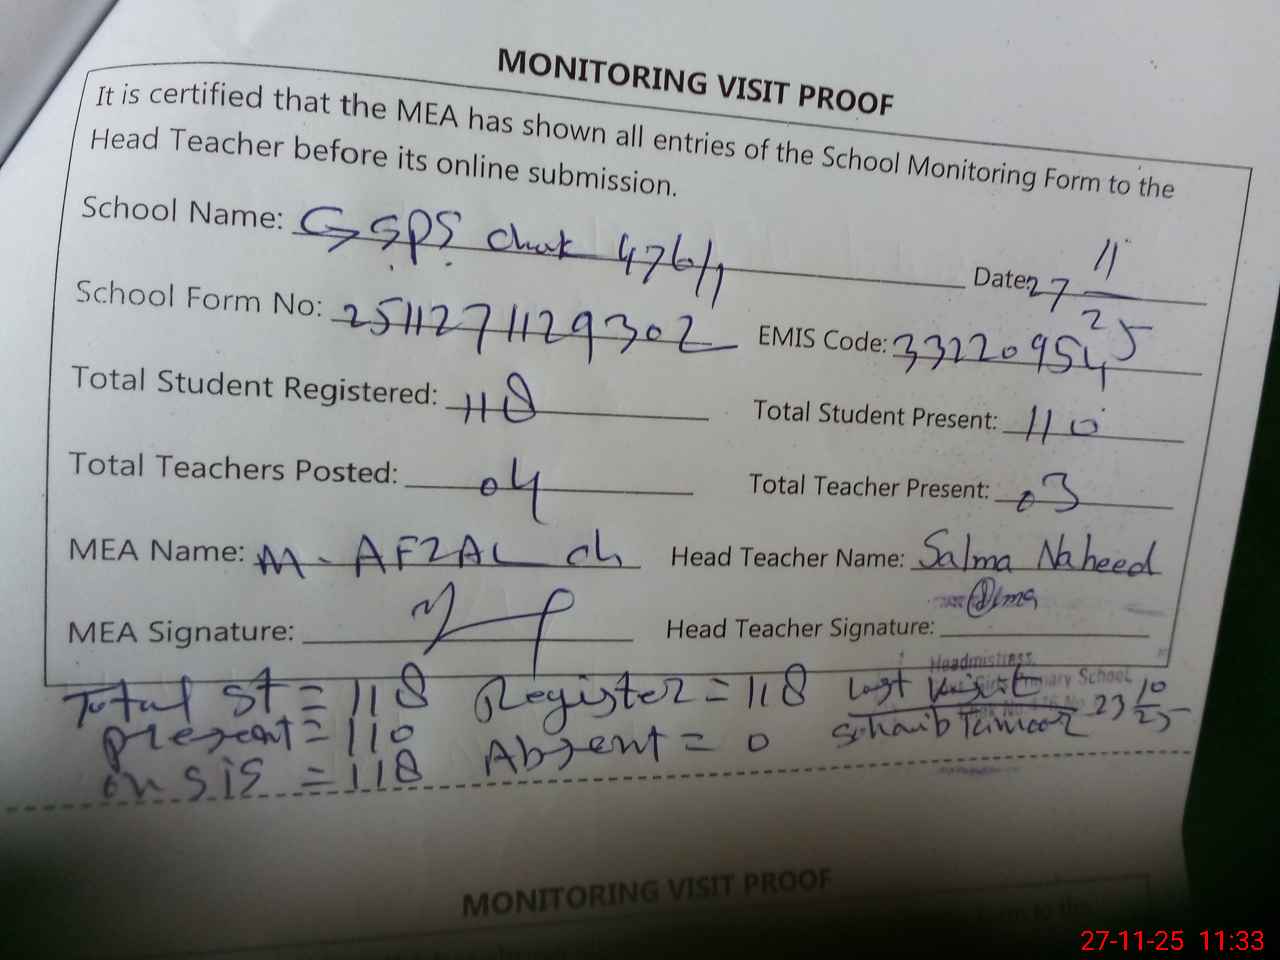 MONITORING VISIT PROOF
It is certified that the MEA has shown all entries of the School Monitoring Form to the
Head Teacher before its online submission.
School Name: GSPS Chak 476/1 Date: 27/11/25
School Form No: 2511271129302 EMIS Code: 33220954
Total Student Registered: 118 Total Student Present: 110
Total Teachers Posted: 04 Total Teacher Present: 03
MEA Name: M. AFZAL ch Head Teacher Name: Salma Naheed
MEA Signature: Head Teacher Signature: Salma
Headmistress
Primary School
Total st = 118 Register = 118 Last Visit 23 10/25
Present = 110 Absent = 0 Sohaib Taimoor
on sis = 118
MONITORING VISIT PROOF
27-11-25 11:33